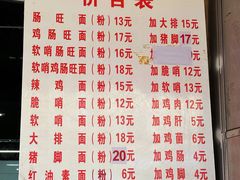 价目表
肠旺面(粉)13元
鸡肠旺面(粉)16元
软哨肠旺面(粉)16元
软哨鸡肠旺面(粉)18元
辣鸡面(粉)15元
脆哨面(粉)12元
软哨面(粉)12元
大排面(粉)18元
猪脚面(粉)20元
红油素面(粉)
加大排15元
加猪脚17元
加脆哨12元
加软哨12元
加鸡肉12元
加鸡肝5元
加鸡菌6元
加鸡肠4元
加鸡脚4元